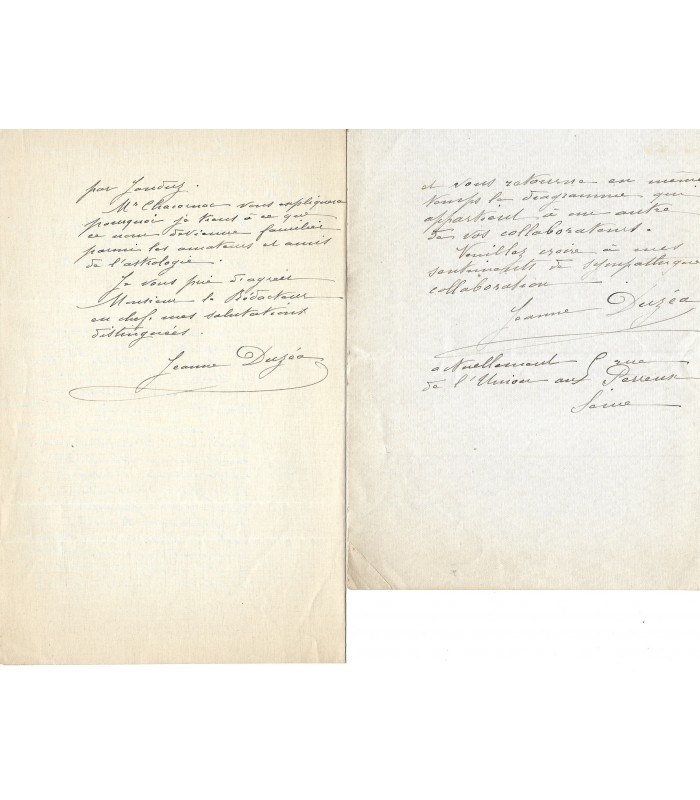 par
Mr Chacornac vous expliquera
pourquoi je tiens à ce que
ce nom devienne familier
parmi les amateurs et amis
de l'astrologie.
Je vous prie d'agréer
Monsieur le Rédacteur
en chef, mes salutations
distinguées.
Jeanne Duzéa
et vous retourne en même
temps le diagramme que
appartient à un autre
de vos collaborateurs.
Veuillez croire à mes
sentiments de sympathique
collaboration
Jeanne Duzéa
actuellement 5 rue
de l'Union au Perreux
Seine